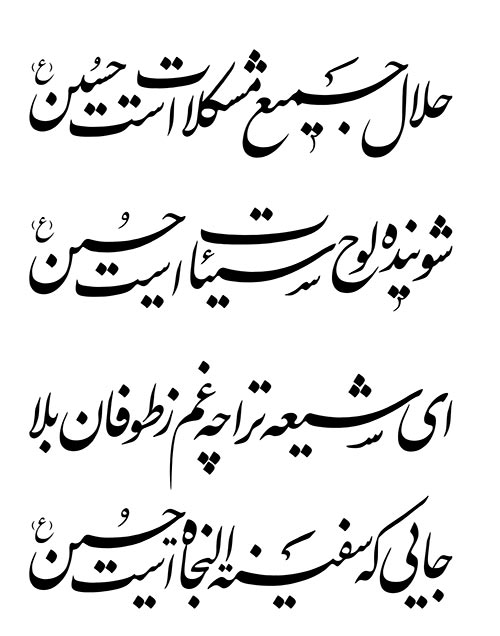 حلال جمیع مشکلات است حسین (ع)
شوینده لوح سیئات است حسین (ع)
ای شیعه ترا چه غم ز طوفان بلا
جایی که سفینة النجاة است حسین (ع)